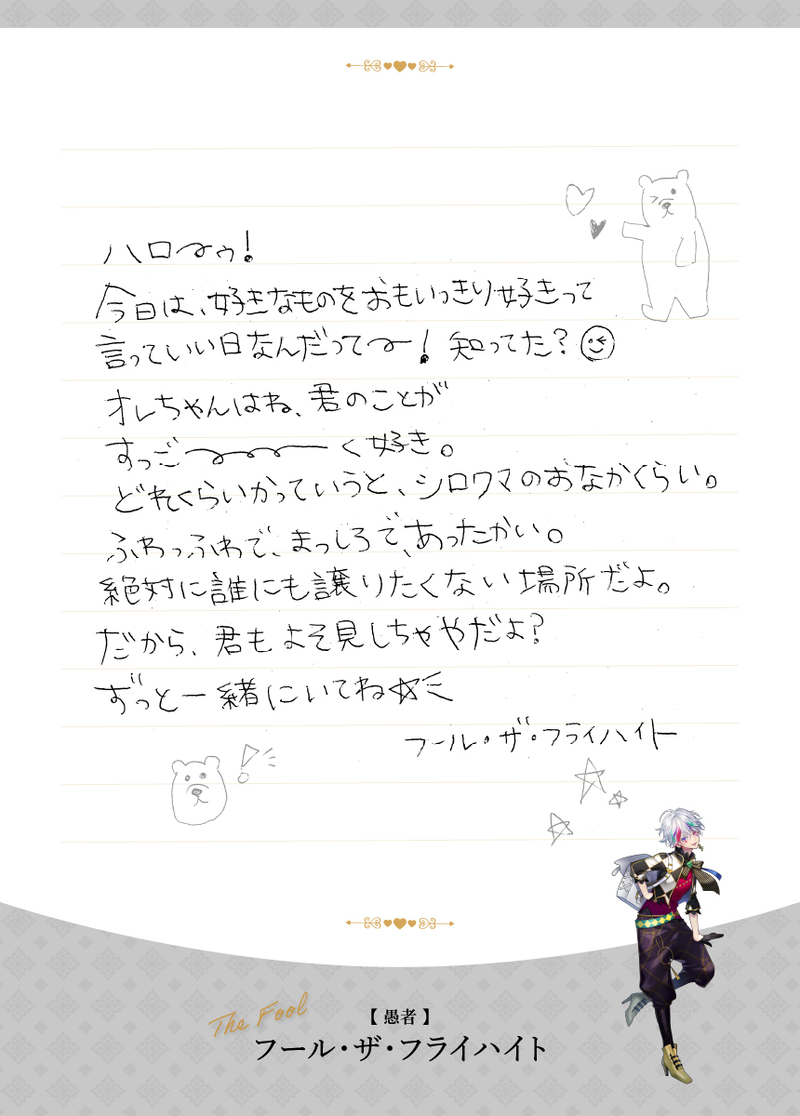 ハロ〜ゥ！
今日は、好きなものをおもいっきり好きって
言っていい日なんだって〜！知ってた？
オレちゃんはね、君のことが
すっご〜〜〜く好き。
どれくらいかっていうと、シロクマのおなかくらい。
ふわっふわで、まっしろで、あったかい。
絶対に誰にも譲りたくない場所だよ。
だから、君もよそ見しちゃやだよ？
ずっと一緒にいてね☆
フール・ザ・フライハイト
The Fool
【愚者】
フール・ザ・フライハイト